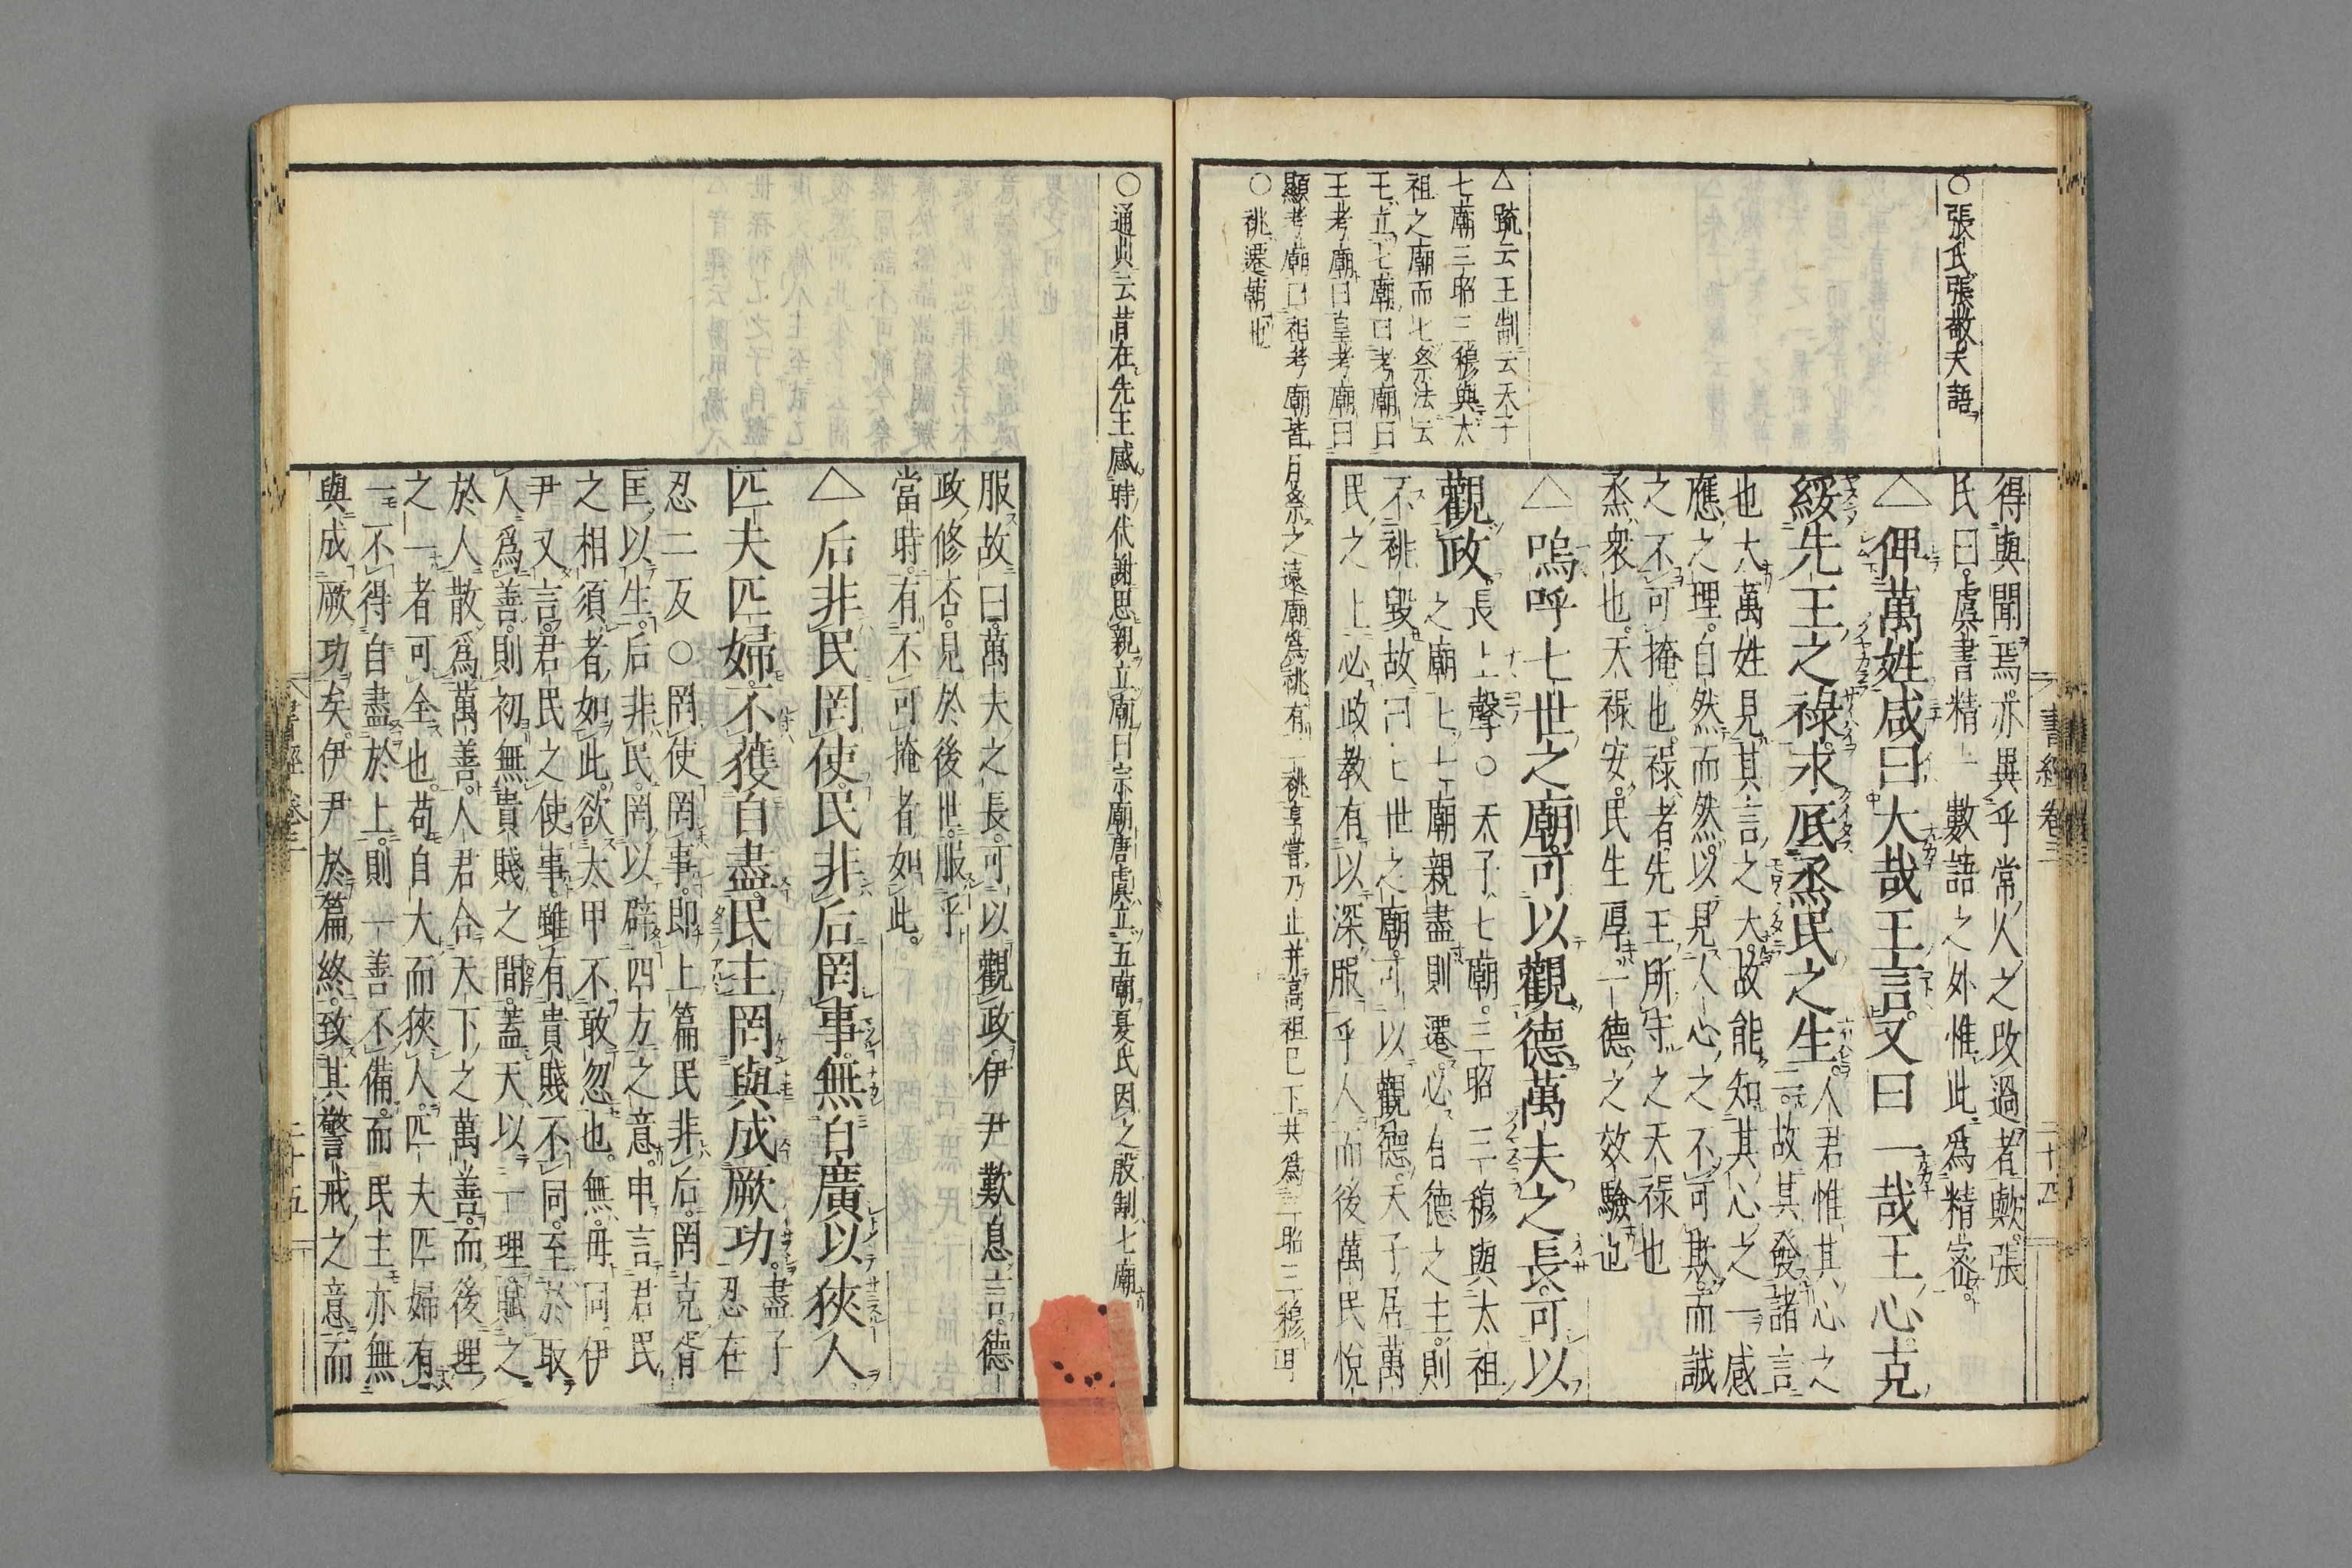 ○張氏張敬夫語
△疏云王制云天子
七廟三昭三穆與太
祖之廟而七祭法云
王立七廟曰考廟曰
王考廟曰皇考廟曰
顯考廟曰祖考廟皆月祭之遠廟爲祧有二祧享嘗乃止并高祖已下共爲三昭三穆耳
○祧遷廟也
得與聞焉亦異乎常人之改過者歟張
氏曰虞書精一數語之外惟此爲精密
△俾萬姓咸曰大哉王言又曰一哉王心克
綏先王之祿永底烝民之生人君惟其心之
一故其發諸言
也大萬姓見其言之大故能知其心之一感
應之理自然而然以見人心之不可欺而誠
之不可掩也祿者先王所守之天祿也
烝衆也天祿安民生厚一德之效驗也
△嗚呼七世之廟可以觀德萬夫之長可以
觀政長上聲○天子七廟三昭三穆與太祖
之廟七七廟親盡則遷必有德之主則
不祧毀故曰七世之廟可以觀德天子居萬
民之上必政教有以深服乎人而後萬民悅
書經卷三 二十四
○通典云昔在先王感時代謝思親立廟曰宗廟唐虞立五廟夏氏因之殷制七廟
服故曰萬夫之長可以觀政伊尹歎息言德
政修否見於後世服乎
當時有不可掩者如此
△后非民罔使民非后罔事無自廣以狹人
匹夫匹婦不獲自盡民主罔與成厥功盡子
忍在
忍二反○罔使罔事即上篇民非后罔克胥
匡以生后非民罔以辟四方之意申言君民
之相須者如此欲太甲不敢忽也無毋同伊
尹又言君民之使事雖有貴賤不同至於取
人爲善則初無貴賤之間蓋天以一理賦之
於人散爲萬善人君合天下之萬善而後理
之一者可全也苟自大而狹人匹夫匹婦有
一不得自盡於上則一善不備而民主亦無
與成厥功矣伊尹於篇終致其警戒之意而
書經卷三 二十五